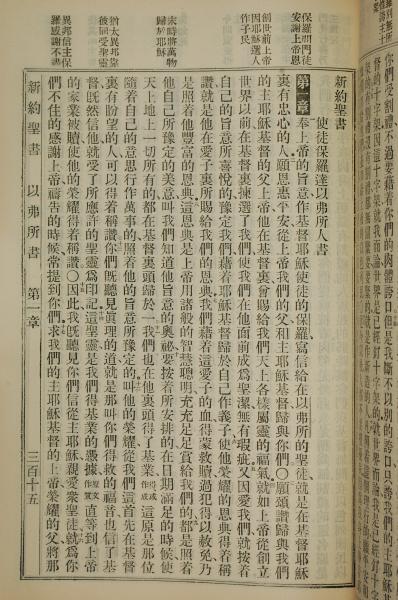 你們受割禮不過要藉着你們的肉體誇口但是我斷不以別的誇口只誇我們主耶穌基
督的十字架因這十字架就我而論世界是已經釘十字架的就世界而論我是已經釘十
新約聖書
使徒保羅達以弗所人書
保羅問門徒
安謝上帝恩
第一章 奉上帝的旨意作基督耶穌使徒的保羅寫信給在以弗所的聖徒就是在基督耶穌
裏有忠心的人願恩惠平安從上帝我們的父和主耶穌基督歸與你們〇願頌讚歸與我們
創世前上帝
因耶穌選人
作子民
的主耶穌基督的父上帝他在基督裏曾賜給我們天上各樣屬靈的福氣就如上帝從創立
世界以前在基督裏揀選了我們使我們在他面前成爲聖潔無有瑕疵又因愛我們就按着
自己的旨意所喜悅的豫定我們藉着耶穌基督歸於自己作義子使他榮耀的恩典得着稱
讚就是他在愛子裏所賜給我們的恩典我們藉着這愛子的血得蒙救贖過犯得以赦免乃
是照着他豐富的恩典這恩典是上帝用諸般的智慧聰明充充足足賞給我們的都是照着
末時將萬物
歸於耶穌
他自己所豫定的美意叫我們知道他旨意的奧祕要按着所安排的在日期滿足的時候使
天上地上一切所有的都在基督裏頭歸於一我們也在他裏頭得了基業或作得成這原是那位
隨着自己的意思行作萬事的照着他的旨意所豫定的叫他的榮耀從我們這首先在基督
猶太異邦靠
彼同受聖靈
裏有盼望的人可以得着稱讚你們旣聽見眞理的道就是那叫你們得救的福音也信了基
督旣然信他就受了所應許的聖靈爲印記這聖靈是我們得基業的憑據原文作質直等到上帝
的家業被贖使他的榮耀得着稱讚〇因此我旣聽見你們信從主耶穌親愛衆聖徒就爲你
異邦信主保
羅感謝不盡
們不住的感謝上帝禱吿的時候常提到你們求我們的主耶穌基督的上帝榮耀的父將那
新約聖書 以弗所書 第一章 三百十五